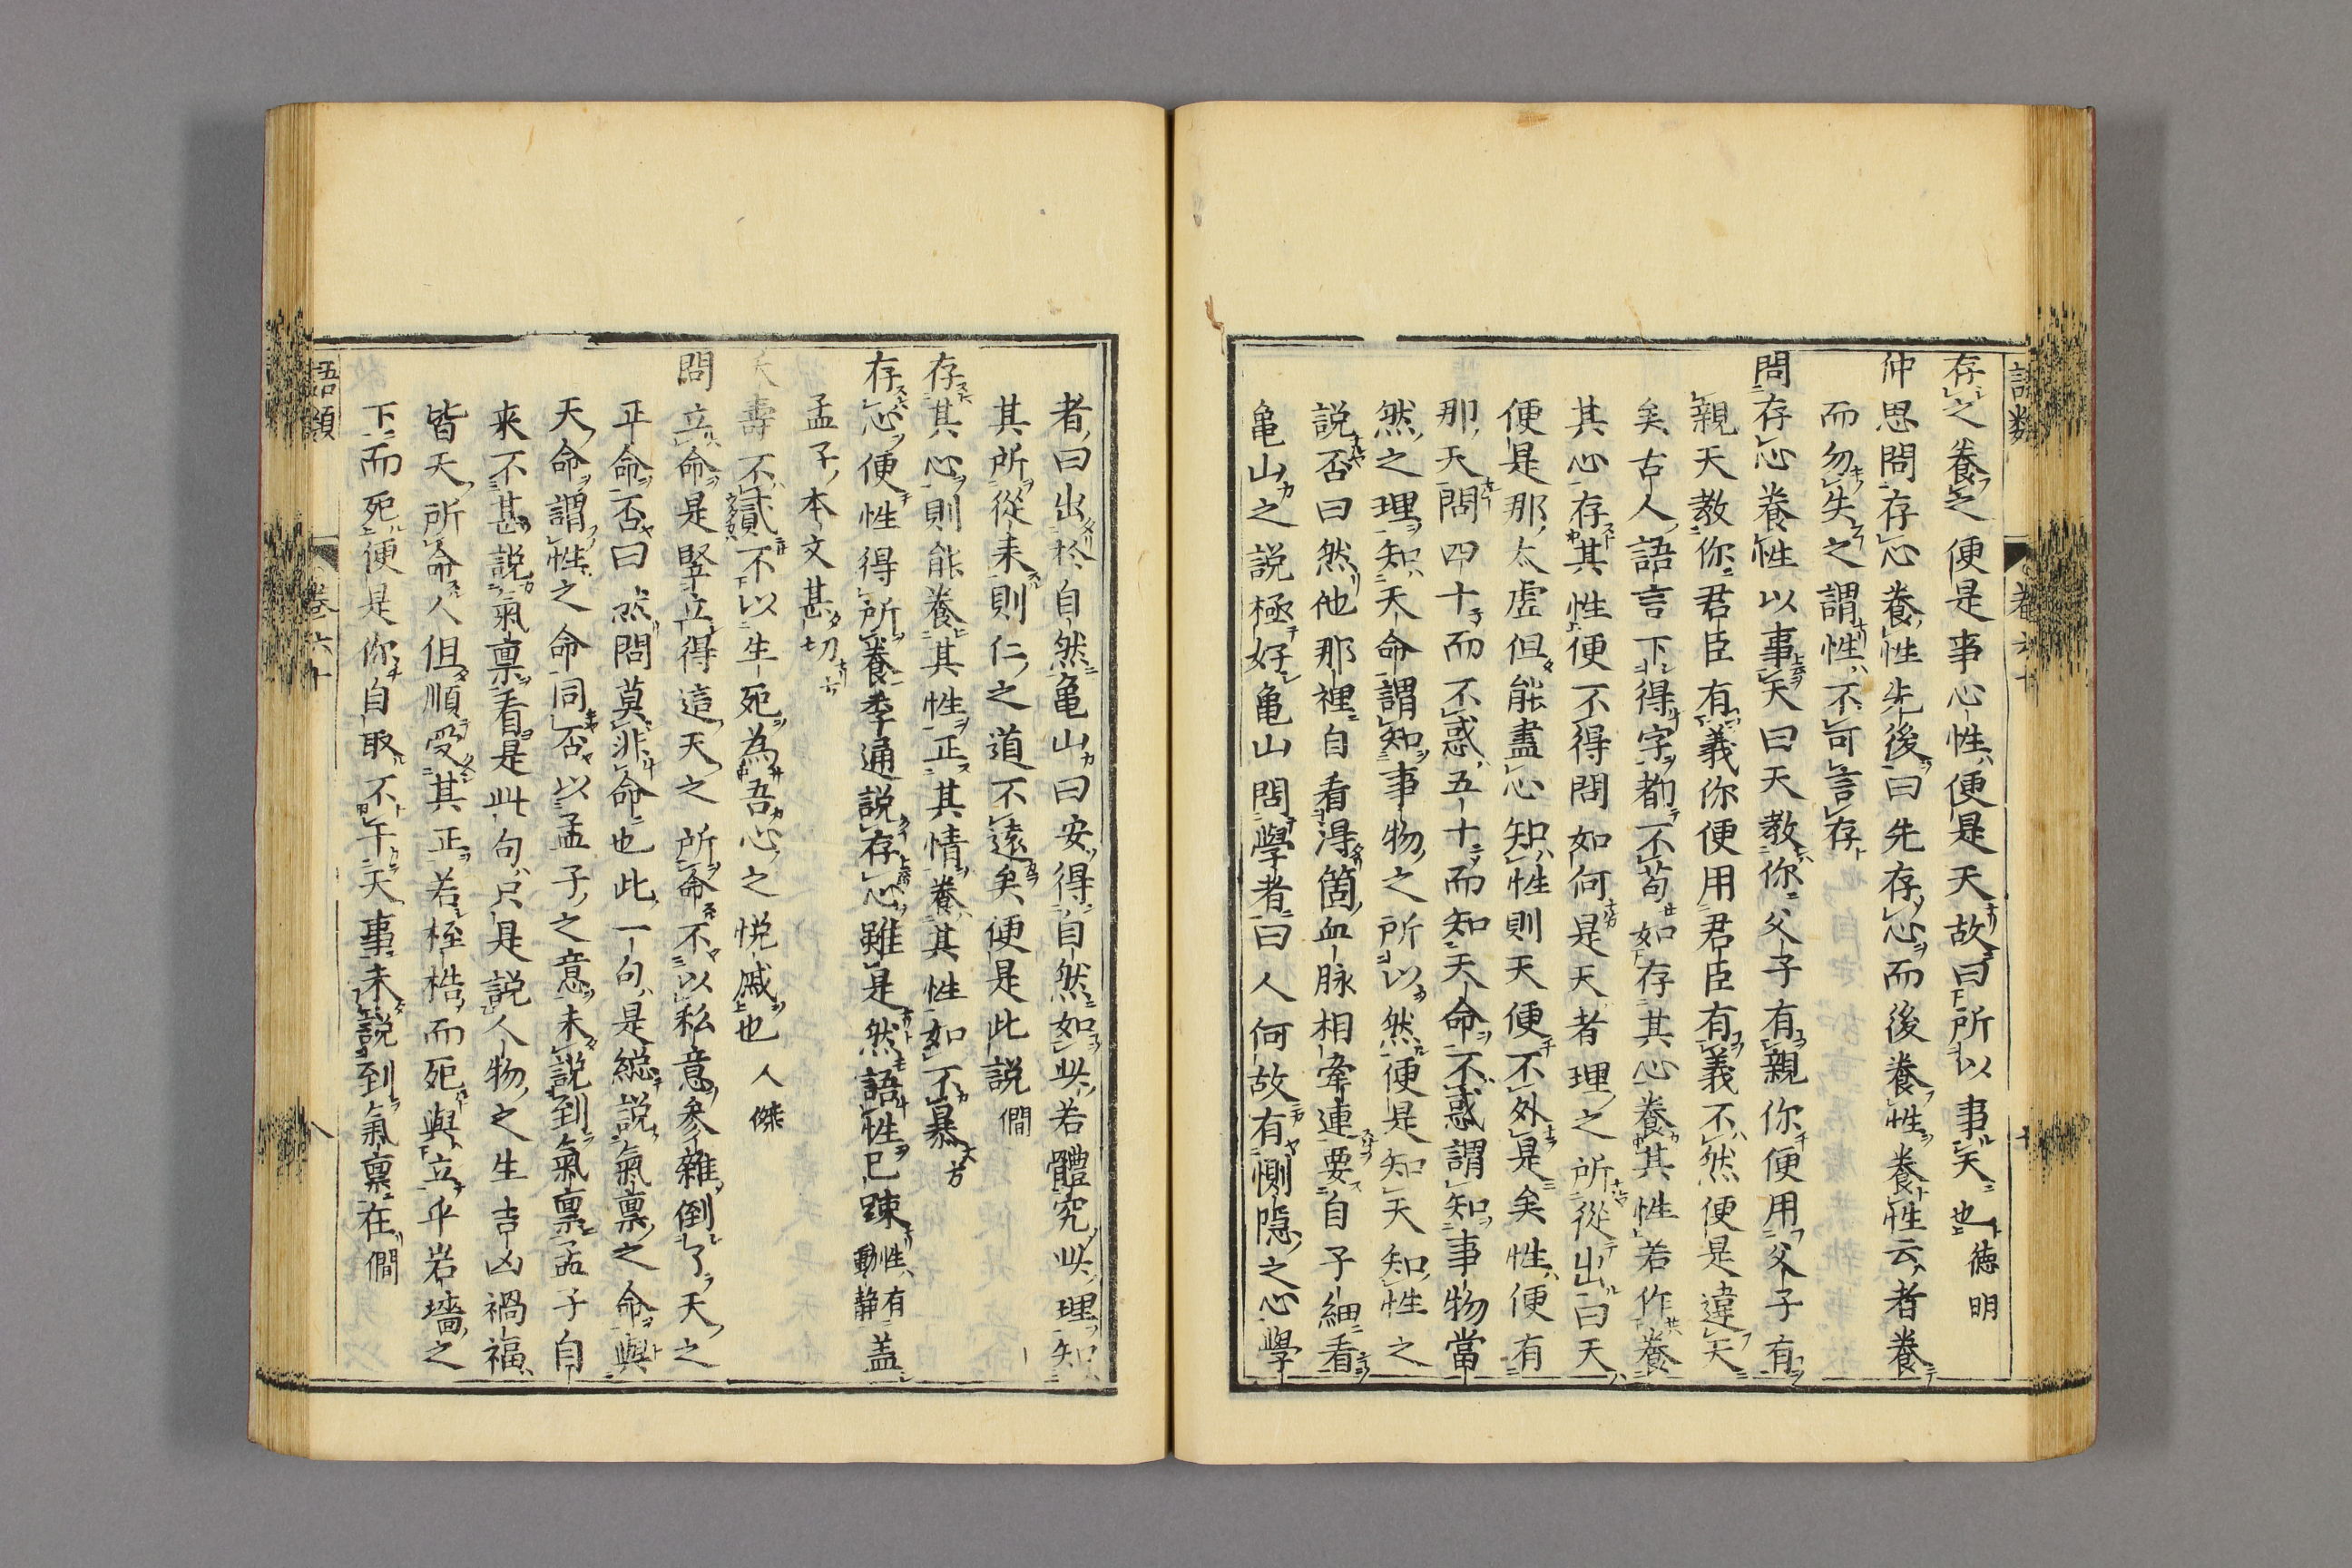 存之養之便是事心性便是天故曰所以事天也 德明
仲思問存心養性先後曰先存心而後養性養性云者養
而勿失之謂性不可言存
問存心養性以事天曰天教你父子有親你便用父子有
親天教你君臣有義你便用君臣有義不然便是違天
矣古人語言下得字都不苟如存其心養其性若作養
其心存其性便不得問如何是天者理之所從出曰天
便是那太虛但能盡心知性則天便不外是矣性便有
那天問四十而不惑五十而知天命不惑謂知事物當
然之理知天命謂知事物之所以然便是知天知性之
説否曰然他那裡自看得箇血脉相牽連要自子細看
亀山之説極好亀山問學者曰人何故有惻隱之心學
語類 卷六十 十
者曰出於自然亀山曰安得自然如此若體究此理知
其所從来則仁之道不遠矣便是此説 僩
存其心則能養其性正其情養其性如不暴 方
存心便性得所養季通説存心雖是然語性已踈性有動静盖
孟子本文甚切
夭壽不貳不以生死為吾心之悦戚也 人傑
問立命是竪立得這天之所命不以私意參雜倒了天之
正命否曰然問莫非命也此一句是総説氣禀之命與
天命謂性之命同否以孟子之意未説到氣禀孟子自
来不甚説氣禀看是此句只是説人物之生吉凶禍福
皆天所命人但順受其正若桎梏而死與立乎岩墻之
下而死便是你自取不干天事未説到氣禀在 僩
語類 卷六十